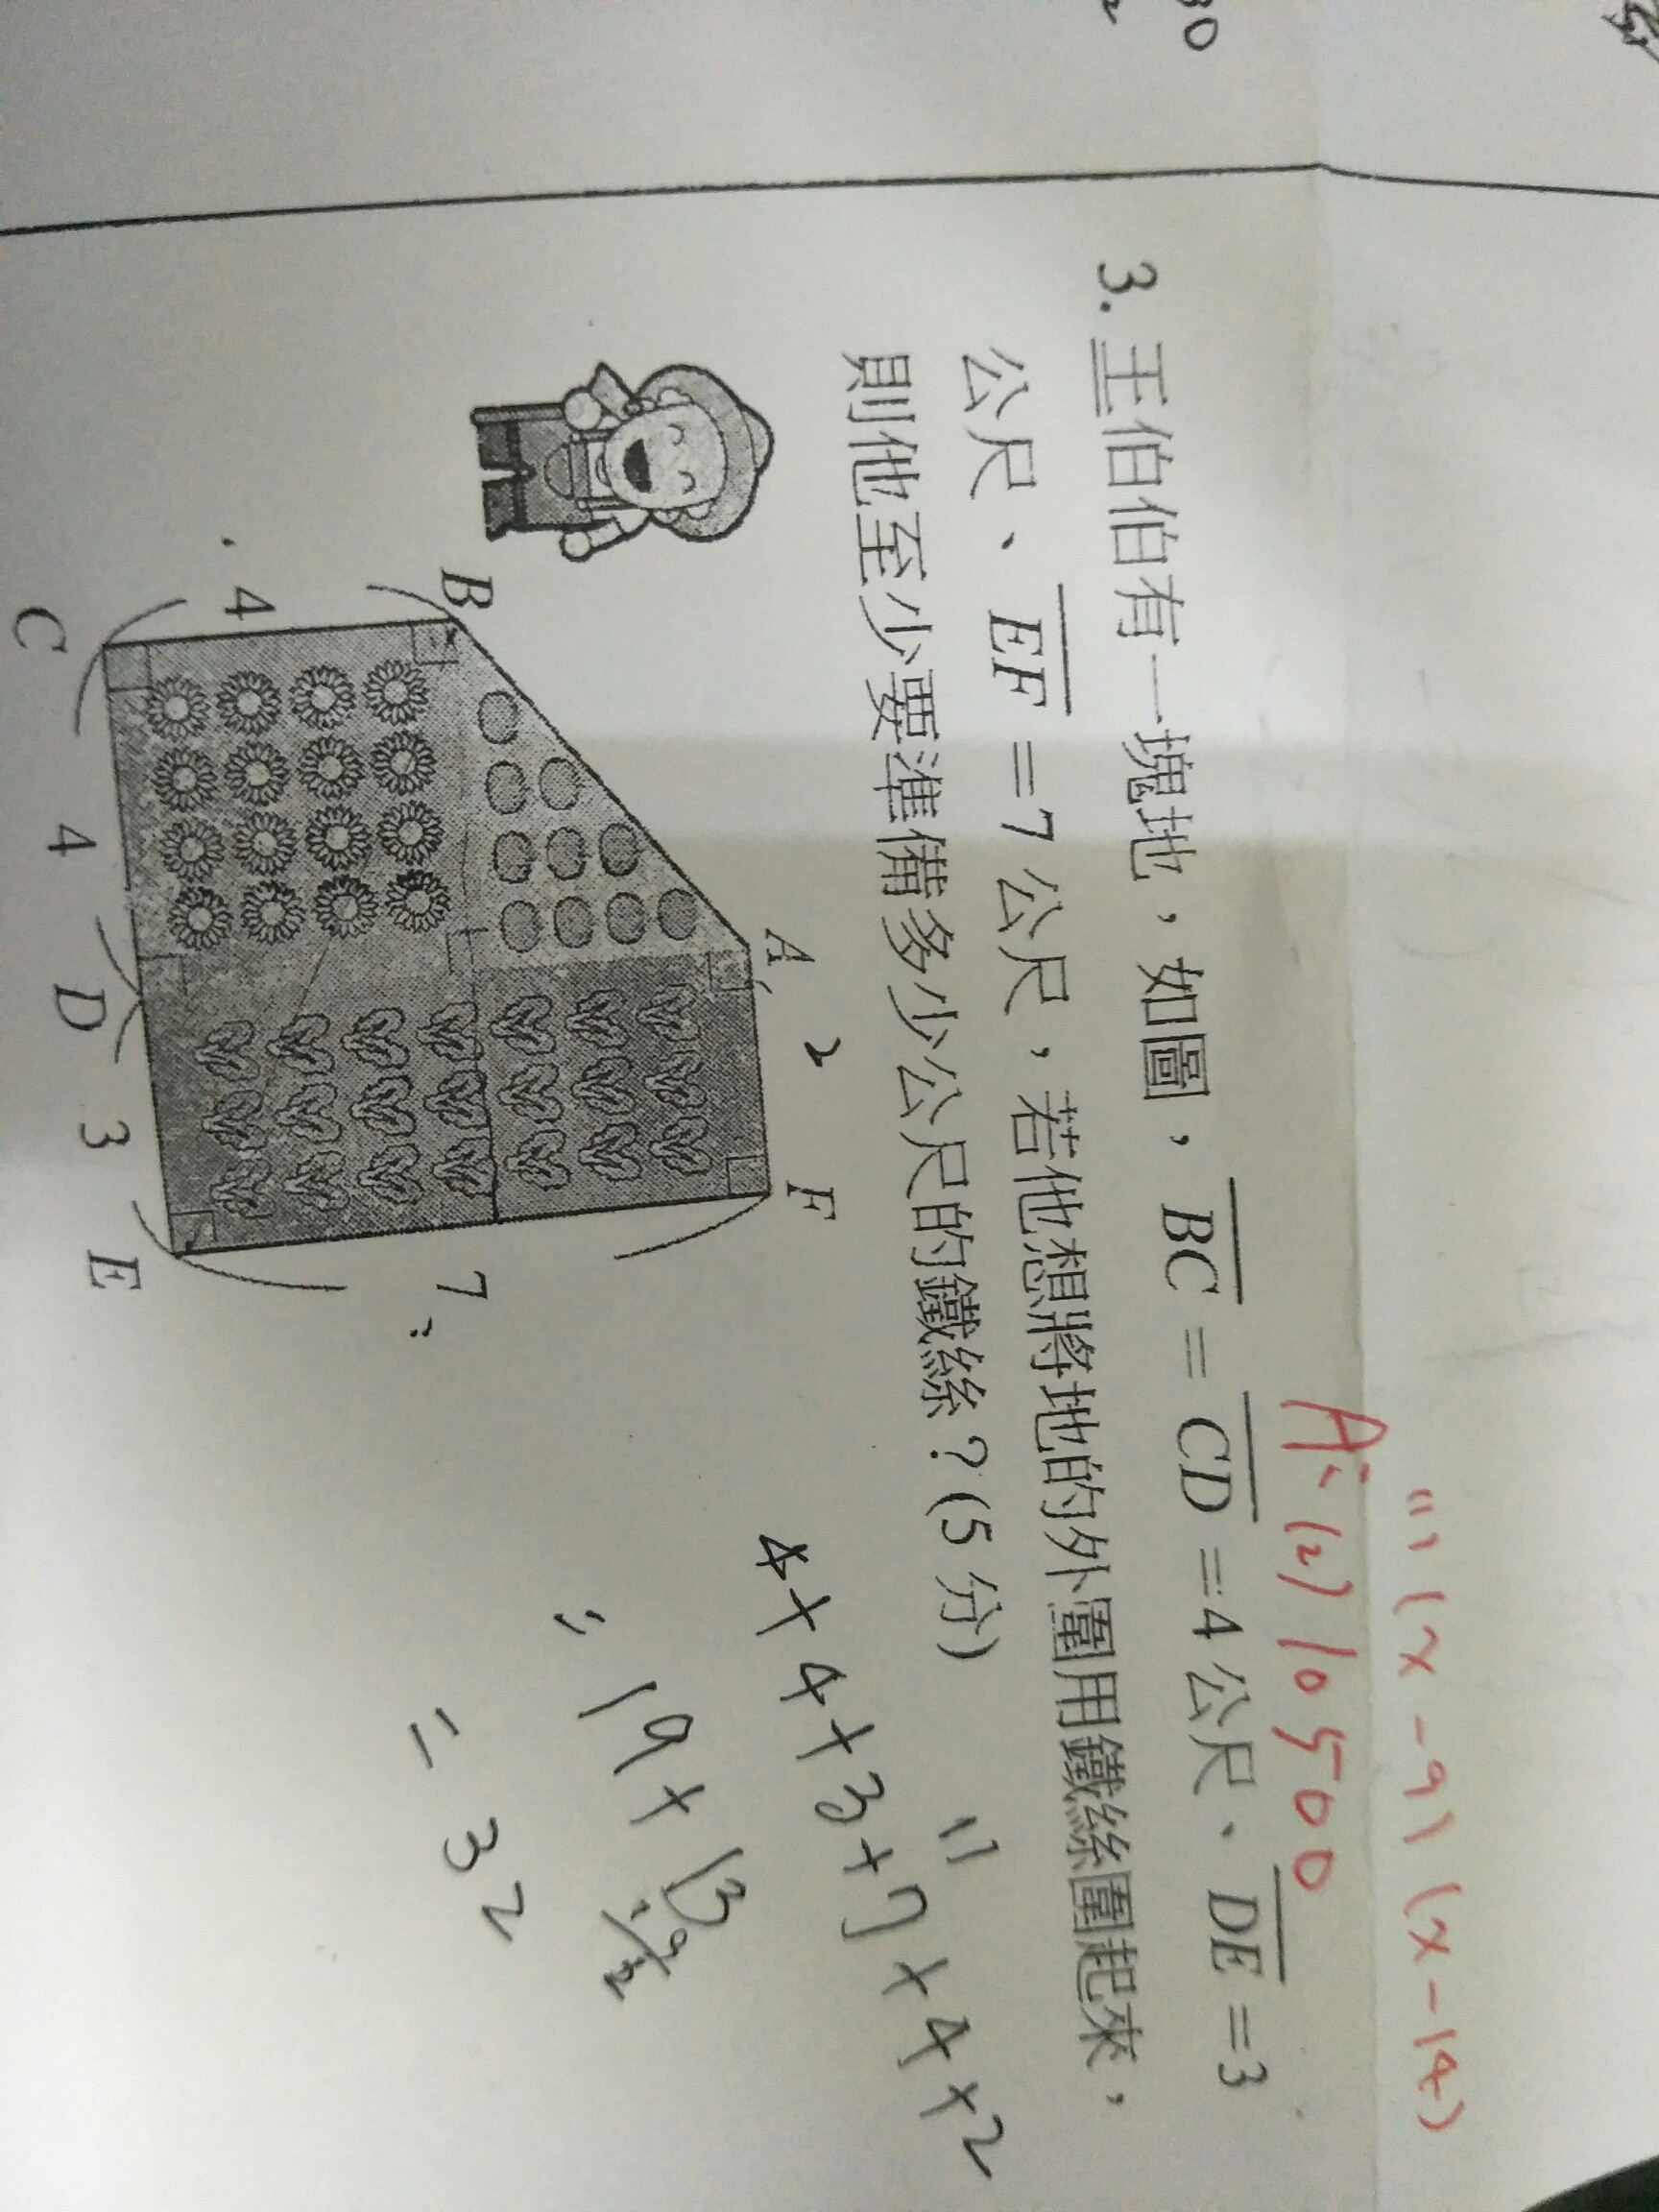 30
2
(1) (x-9)(x-14)
A: (2) 10500
3. 王伯伯有一塊地，如圖，BC=CD=4公尺、DE=3
公尺、EF=7公尺，若他想將地的外圍用鐵絲圍起來，
則他至少要準備多少公尺的鐵絲？(5分)
A 2 F
B
4
7
C 4 D 3 E
4+4+3+7+4+2
=19+13
=32